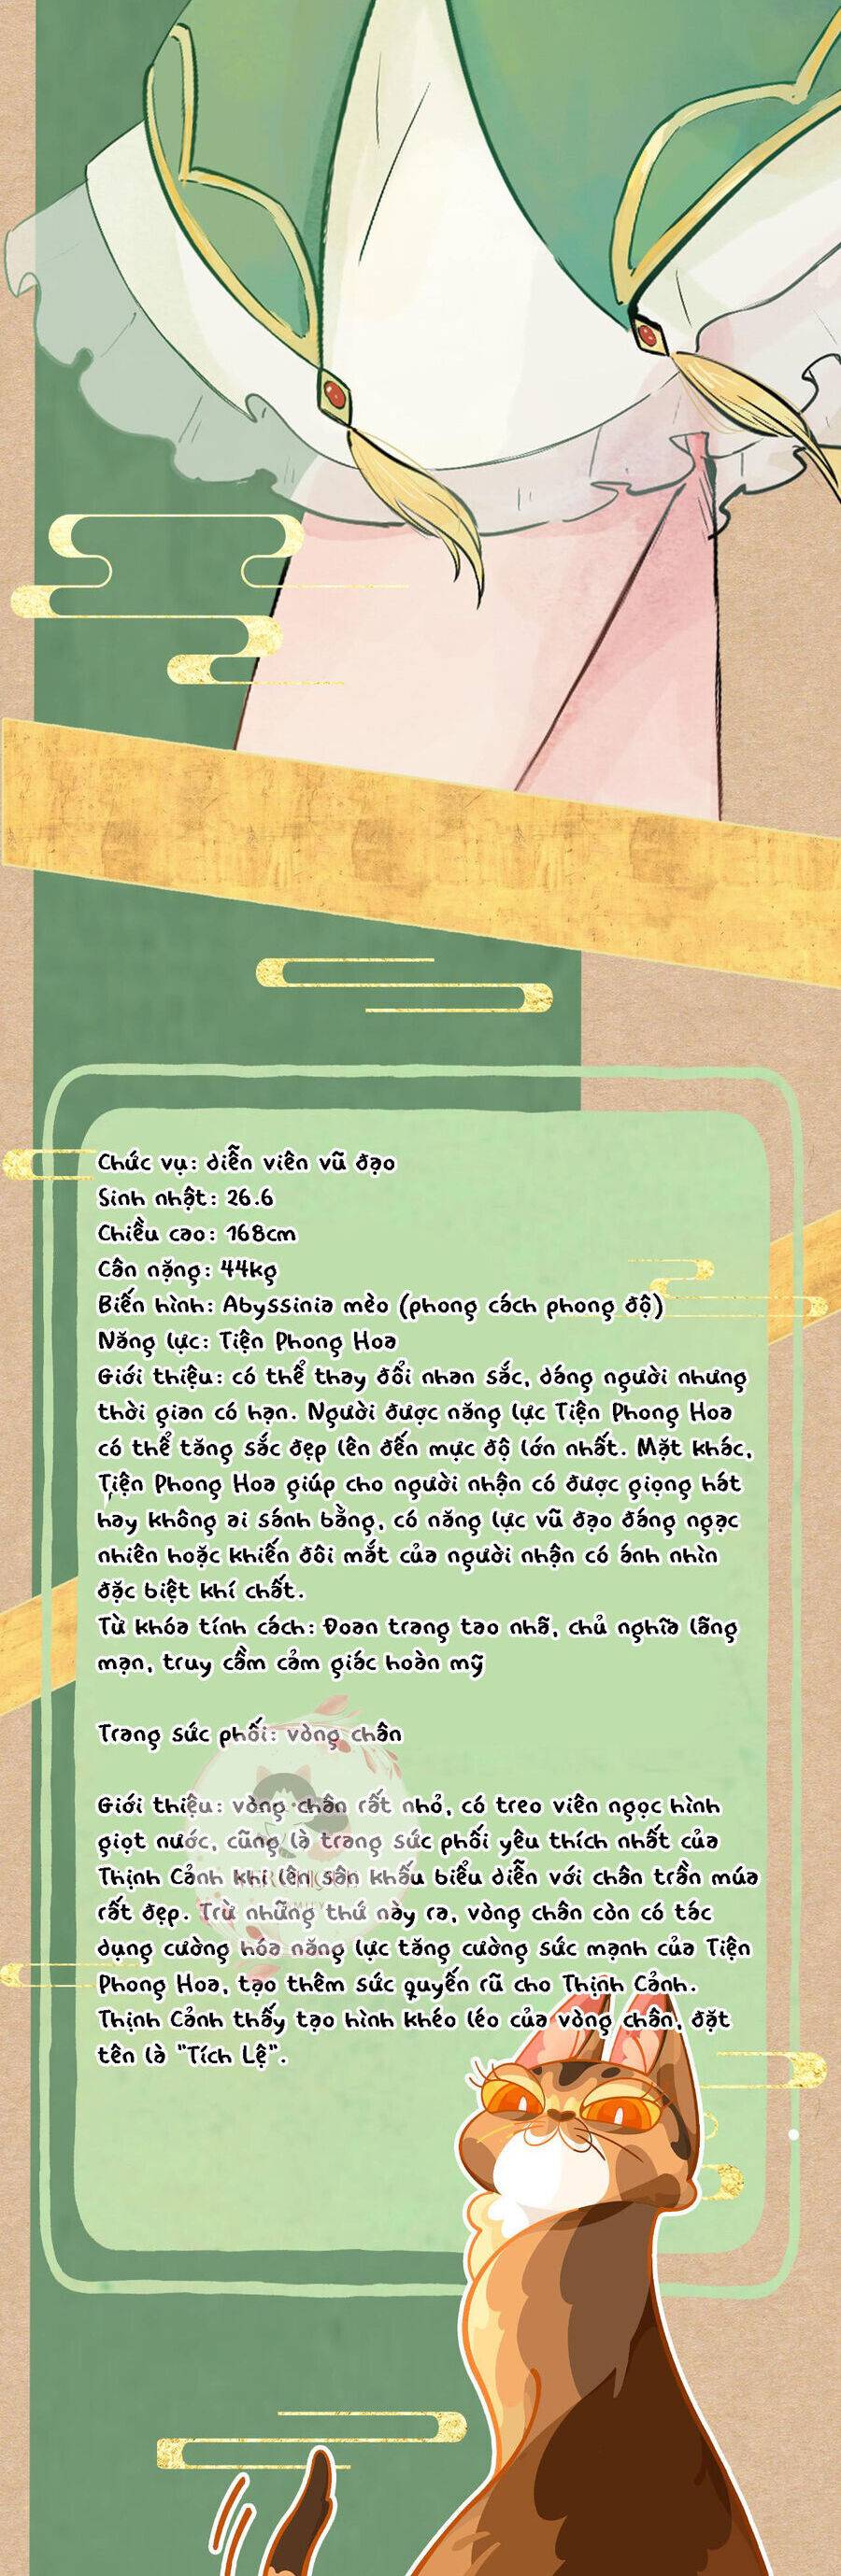 Chức vụ: diễn viên vũ đạo
Sinh nhật: 26.6
Chiều cao: 168cm
Cân nặng: 44kg
Biến hình: Abyssinia mèo (phong cách phong độ)
Năng lực: Tiện Phong Hoa
Giới thiệu: có thể thay đổi nhan sắc, dáng người nhưng
thời gian có hạn. Người được năng lực Tiện Phong Hoa
có thể tăng sắc đẹp lên đến mực độ lớn nhất. Mặt khác,
Tiện Phong Hoa giúp cho người nhận có được giọng hát
hay không ai sánh bằng, có năng lực vũ đạo đáng ngạc
nhiên hoặc khiến đôi mắt của người nhận có ánh nhìn
đặc biệt khí chất.
Từ khóa tính cách: Đoan trang tao nhã, chủ nghĩa lãng
mạn, truy cầm cảm giác hoàn mỹ
Trang sức phối: vòng chân
Giới thiệu: vòng chân rất nhỏ, có treo viên ngọc hình
giọt nước, cũng là trang sức phối yêu thích nhất của
Thịnh Cảnh khi lên sân khấu biểu diễn với chân trần múa
rất đẹp. Trừ những thứ này ra, vòng chân còn có tác
dụng cường hóa năng lực tăng cường sức mạnh của Tiện
Phong Hoa, tạo thêm sức quyến rũ cho Thịnh Cảnh.
Thịnh Cảnh thấy tạo hình khéo léo của vòng chân, đặt
tên là "Tích Lệ".